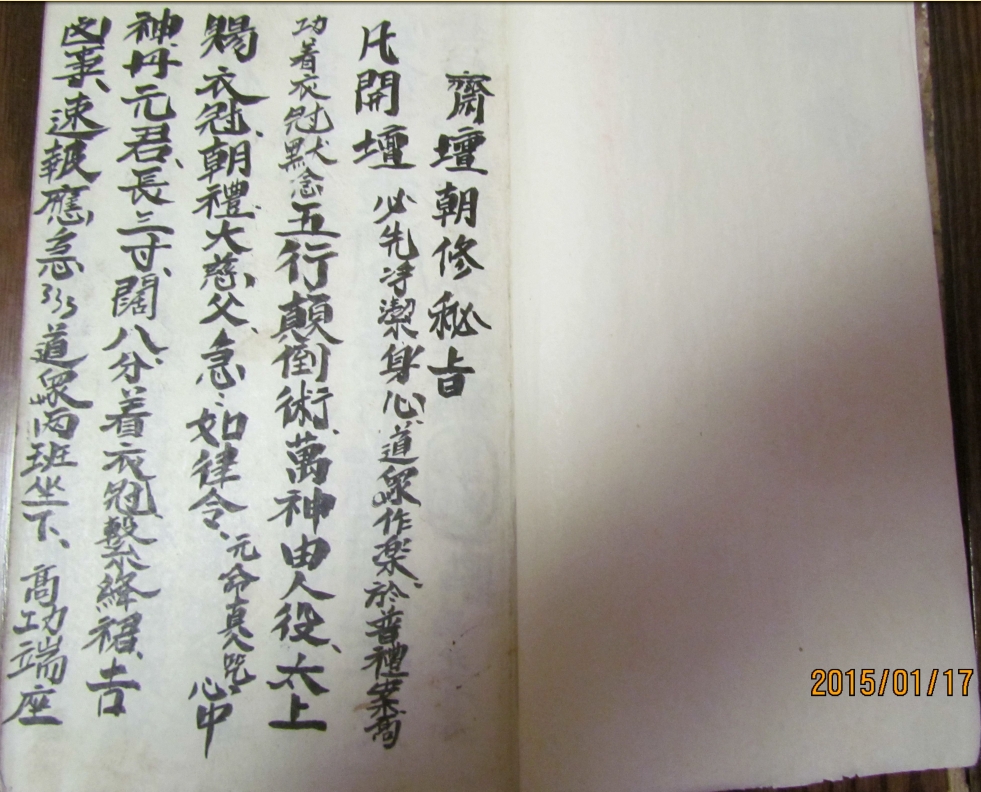 齋壇朝修秘旨
凡開壇 必先净潔身心、道眾作樂、於普禮畢高
功着衣冠默念五行顛倒術、萬神由人役、太上
賜衣冠、朝禮大慈父、急〻如律令、元命真咒、心中
神丹元君、長三寸、闊八分、着衣冠、繫絳裙、吉
凶事、速報應、急〻〻道眾両班坐下、高功端座
2015/01/17